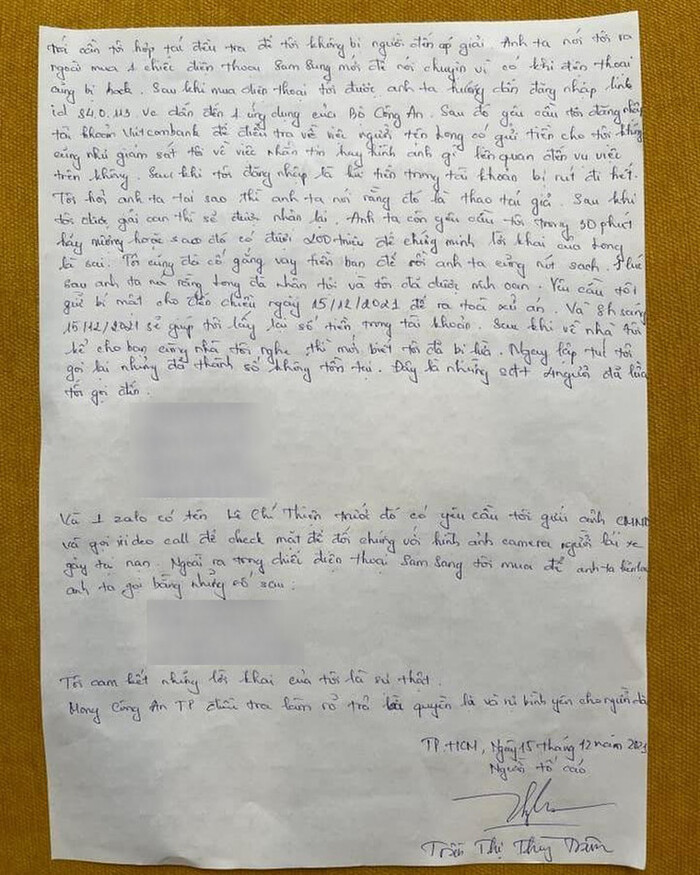 tôi cần tôi hợp tác điều tra để tôi không bị người đến áp giải. Anh ta nói tôi ra
ngoài mua 1 chiếc điện thoại Sam Sung mới để nói chuyện vì có khi điện thoại
cũng bị hack. Sau khi mua điện thoại tôi được anh ta hướng dẫn đăng nhập link
id 84.0.113. vc dẫn đến 1 ứng dụng của Bộ Công An. Sau đó yêu cầu tôi đăng nhập
tài khoản Vietcombank để điều tra về việc người tên Long có gửi tiền cho tôi không
cũng như giám sát tôi về việc nhắn tin hay hình ảnh gì liên quan đến vụ việc
trên không. Sau khi tôi đăng nhập là hà tiền trong tài khoản bị rút đi hết.
Tôi hỏi anh ta tại sao thì anh ta nói rằng đó là thao tác giả. Sau khi
tôi được giải oan thì sẽ được nhận lại. Anh ta còn yêu cầu tôi trong 30 phút
hãy mượn hoặc sao đó có được 200 triệu để chứng minh lời khai của Long
là sai. Tôi cũng đã cố gắng vay tiền bạn để rồi anh ta cũng rút sạch. 1 lúc
sau anh ta nói rằng Long đã nhận tội và tôi đã được minh oan. Yêu cầu tôi
giữ bí mật cho đến chiều ngày 15/12/2021 để ra toà xử án. Và 8h sáng
15/12/2021 sẽ giúp tôi lấy lại số tiền trong tài khoản. Sau khi về nhà tôi
kể cho bạn cùng nhà tôi nghe thì mới biết tôi đã bị lừa. Ngay lập tức tôi
gọi lại nhưng đã thành số không tồn tại. Đây là những sđt 4 người đã lừa
tôi gọi đến.
Và 1 zalo có tên Lê Chí Thiện trước đó có yêu cầu tôi gửi ảnh CMND
và gọi video call để check mặt để đối chứng với hình ảnh camera người lái xe
gây tai nạn. Ngoài ra trong chiếc điện thoại Sam Sang tôi mua để anh ta liên lạc
anh ta gọi bằng những số sau:
Tôi cam kết những lời khai của tôi là sự thật.
Mong Công An TP điều tra làm rõ trả lại quyền là và sự bình yên cho người dân
TP.HCM, Ngày 15 tháng 12 năm 2021
Người tố cáo
Trần Thị Thuỳ Trâm